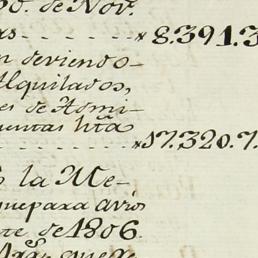 20. de Nov.
as - - - - 8.391.3
n serviendo
Alquilados,
es de Admi-
cuentas hta
- - - - - 17.320.7.
la Me-
que para avio
te de 1806.